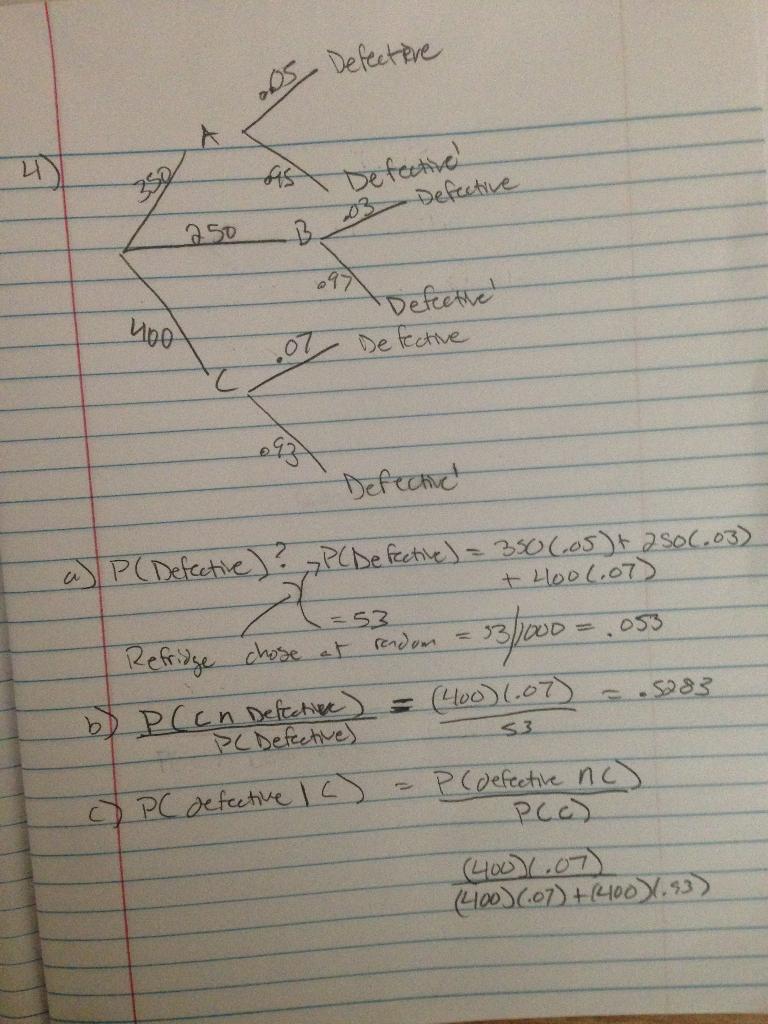 .05 Defective
4) A
350 .95 Defective'
250 B .03 Defective
.97 Defective'
400 .07 Defective
C
.93 Defective'
a) P(Defective)? → P(Defective) = 350(.05) + 250(.03)
+ 400(.07)
= 53
Refridge chose at random = 53/1000 = .053
b) P(C ∩ Defective) = (400)(.07) = .5283
P(Defective) 53
c) P(defective | C) = P(defective ∩ C)
P(C)
(400)(.07)
(400)(.07) + (400)(.93)